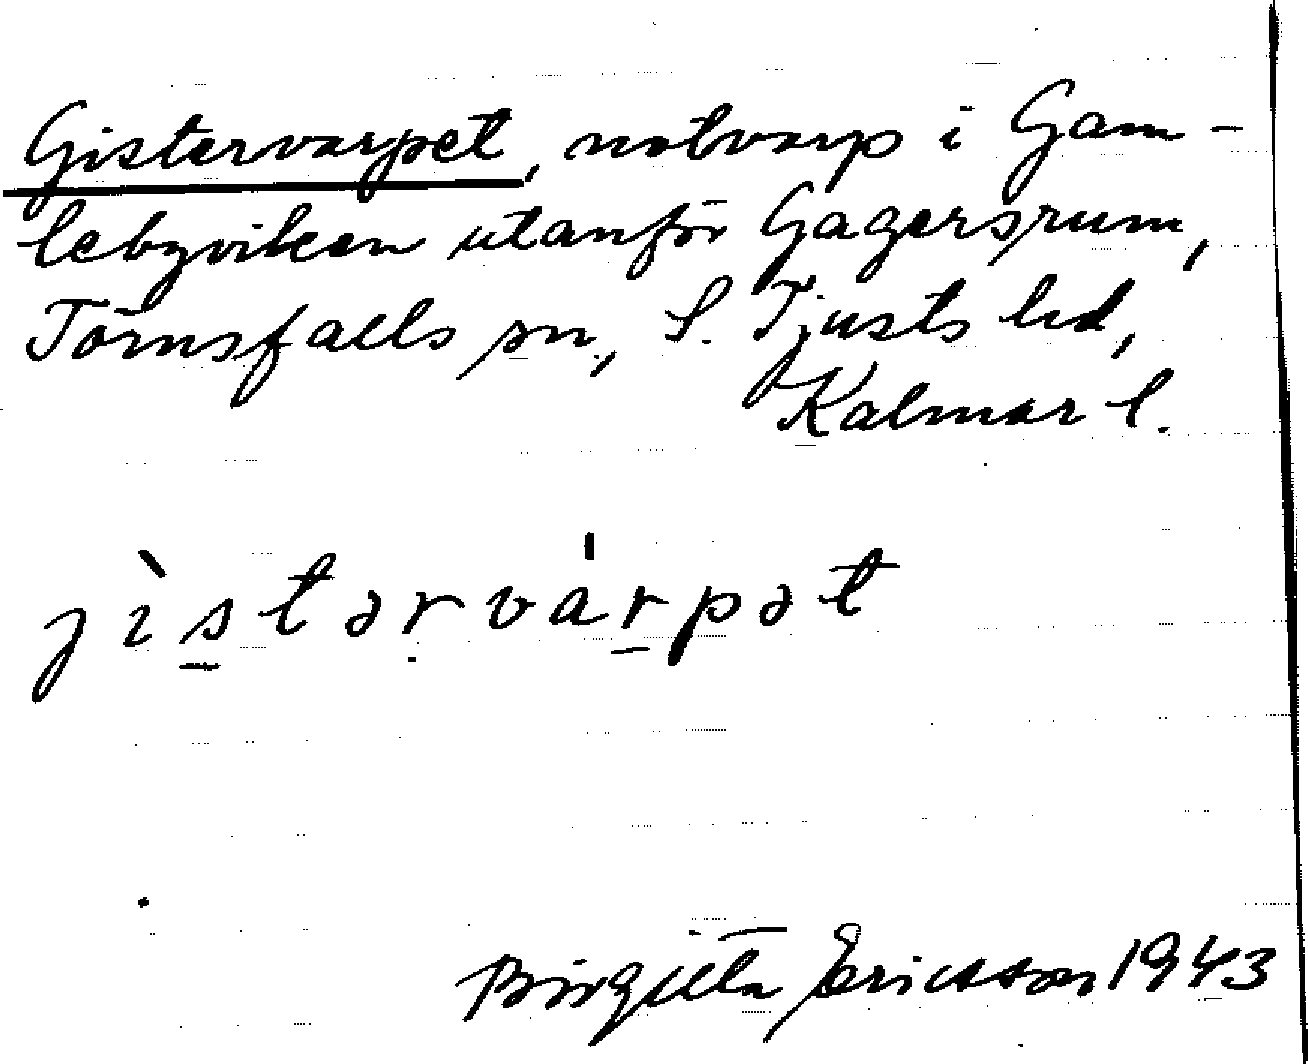 Gistervarpet, notvarp i Gam-
lebyviken utanför Gagersrum,
Törnsfalls sn, S. Tjusts hd,
Kalmar l.
jìstərvárpət
Birgitta Ericsson 1943